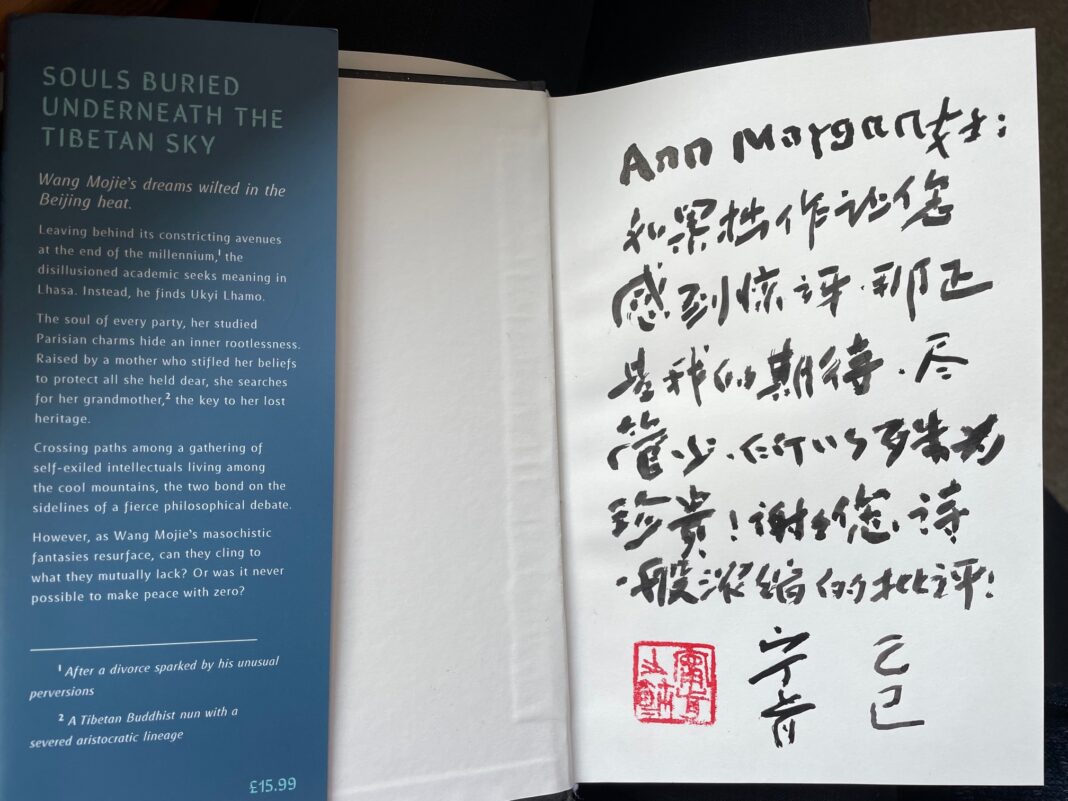 SOULS BURIED
UNDERNEATH THE
TIBETAN SKY
Wang Mojie's dreams wilted in the
Beijing heat.
Leaving behind its constricting avenues
at the end of the millennium,¹ the
disillusioned academic seeks meaning in
Lhasa. Instead, he finds Ukyi Lhamo.
The soul of every party, her studied
Parisian charms hide an inner rootlessness.
Raised by a mother who stifled her beliefs
to protect all she held dear, she searches
for her grandmother,² the key to her lost
heritage.
Crossing paths among a gathering of
self-exiled intellectuals living among
the cool mountains, the two bond on the
sidelines of a fierce philosophical debate.
However, as Wang Mojie's masochistic
fantasies resurface, can they cling to
what they mutually lack? Or was it never
possible to make peace with zero?
¹ After a divorce sparked by his unusual
perversions
² A Tibetan Buddhist nun with a
severed aristocratic lineage
£15.99
Ann Morgan女士:
如果拙作让您
感到惊讶,那正
是我的期待。尽
管少, 殊为
珍贵!谢谢您,诗
一般浓缩的批评!
宁肯
乙巳